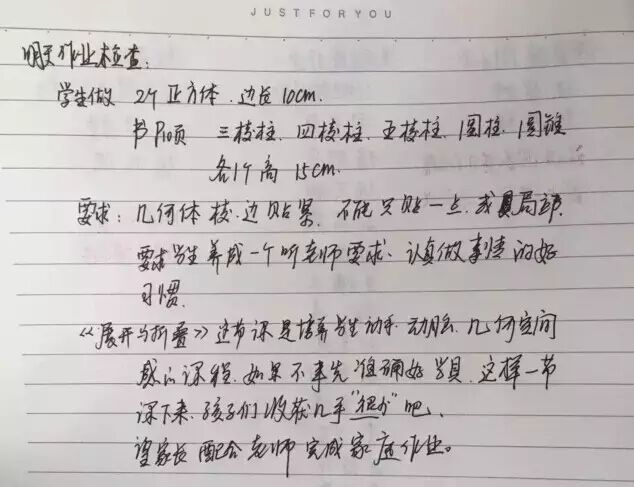 JUSTFORYOU
明天作业检查:
学生做 2个正方体.边长10cm.
书P10页 三棱柱.四棱柱.五棱柱.圆柱.圆锥
各1个高15cm.
要求:几何体棱.边贴紧.不能只贴一点.或局部.
要求学生养成一个听老师要求、认真做事情的好
习惯.
《展开与折叠》这节课是培养学生动手.动脑.几何空间
感的课程.如果不事先准确好学具.这样一节
课下来.孩子们收获几乎“很少”吧.
望家长配合老师完成家庭作业。